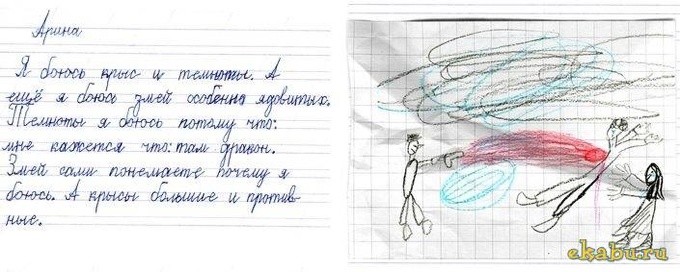 Арина
Я боюсь крыс и темноты. А
ещё я боюсь змей особенно ядовитых.
Темноты я боюсь потому что:
мне кажется что: там дракон.
Змей сами понемаете почему я
боюсь. А крысы большие и против-
ные.
ekabu.ru